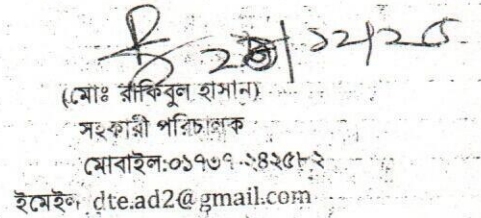 /১২/২৫
(মোঃ রাকিবুল হাসান)
সহকারী পরিচালক
মোবাইল:০১৭৬৭-২৪২৫৮২
ইমেইল: dte.ad2@gmail.com